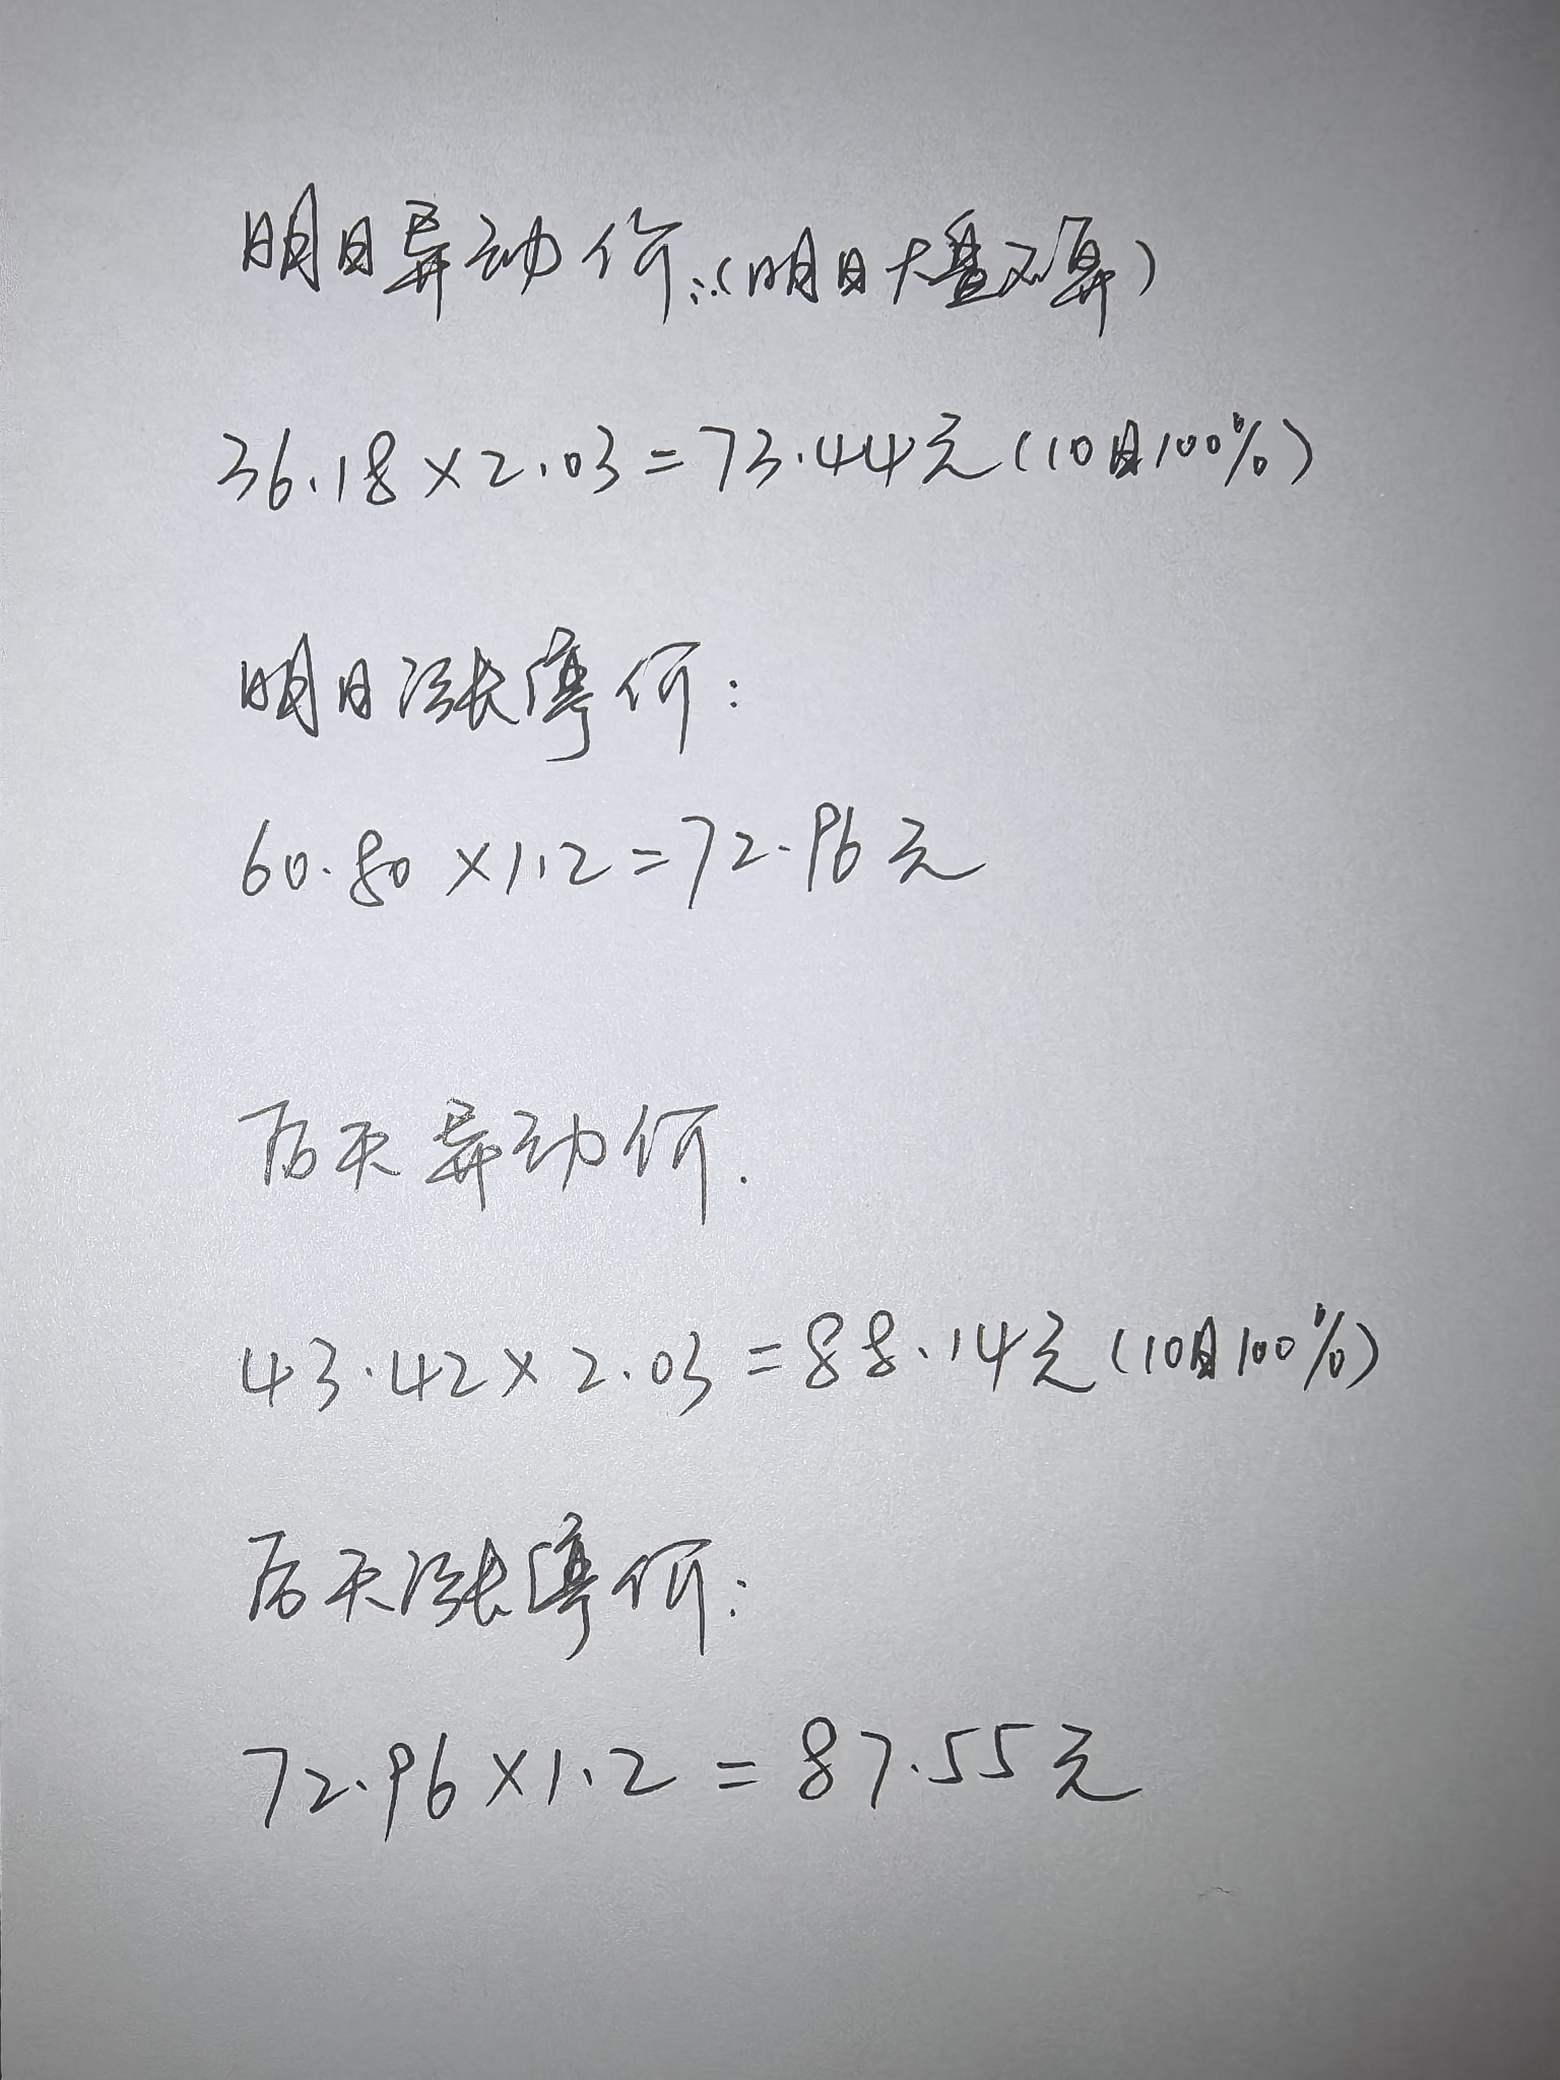 明日异动价:(明日大盘不算)
36.18×2.03=73.44元(10日100%)
明日涨停价:
60.80×1.2=72.96元
后天异动价.
43.42×2.03=88.14元(10日100%)
后天涨停价:
72.96×1.2=87.55元